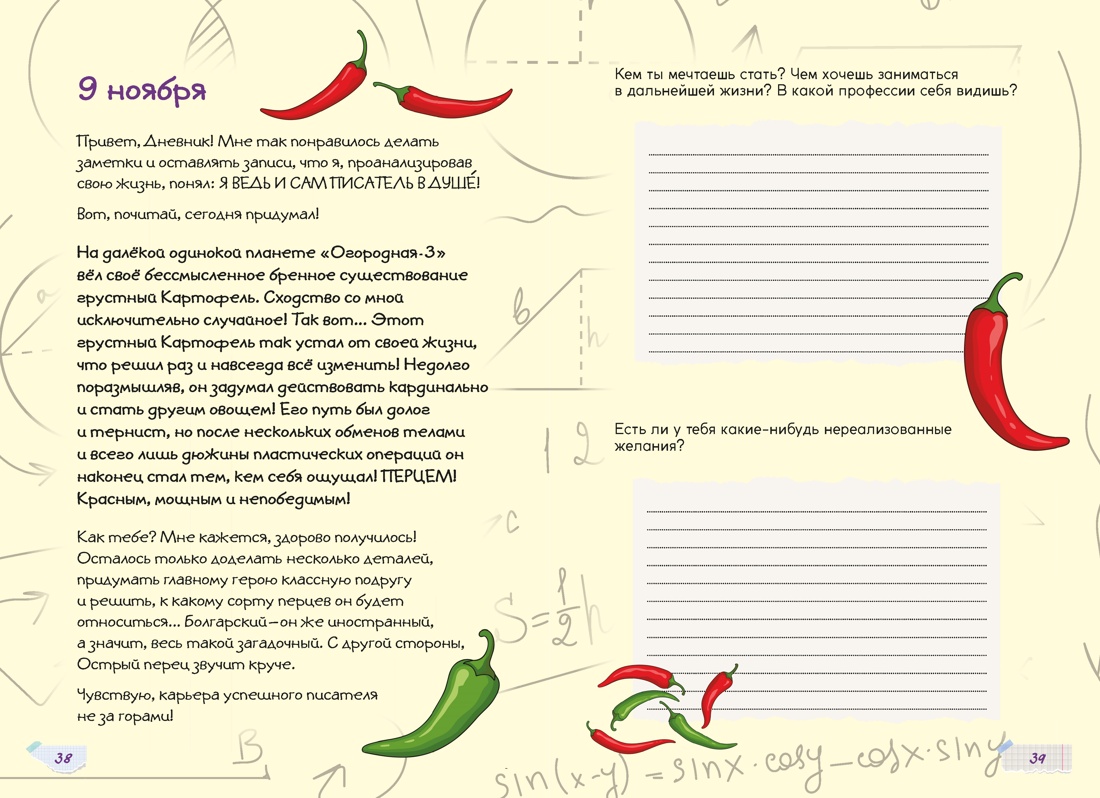 9 ноября
Привет, Дневник! Мне так понравилось делать
заметки и оставлять записи, что я, проанализировав
свою жизнь, понял: Я ВЕДЬ И САМ ПИСАТЕЛЬ В ДУШЕ́!
Вот, почитай, сегодня придумал!
На далёкой одинокой планете «Огородная-3»
вёл своё бессмысленное бренное существование
грустный Картофель. Сходство со мной
исключительно случайное! Так вот... Этот
грустный Картофель так устал от своей жизни,
что решил раз и навсегда всё изменить! Недолго
поразмышляв, он задумал действовать кардинально
и стать другим овощем! Его путь был долог
и тернист, но после нескольких обменов телами
и всего лишь дюжины пластических операций он
наконец стал тем, кем себя ощущал! ПЕРЦЕМ!
Красным, мощным и непобедимым!
Как тебе? Мне кажется, здорово получилось!
Осталось только доделать несколько деталей,
придумать главному герою классную подругу
и решить, к какому сорту перцев он будет
относиться... Болгарский — он же иностранный,
а значит, весь такой загадочный. С другой стороны,
Острый перец звучит круче.
Чувствую, карьера успешного писателя
не за горами!
38
Кем ты мечтаешь стать? Чем хочешь заниматься
в дальнейшей жизни? В какой профессии себя видишь?
Есть ли у тебя какие-нибудь нереализованные
желания?
39
a
b
h
12
c
S=1/2h
B
sin(x-y) = sinx·cosy-cosx·siny